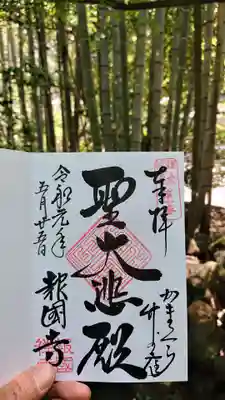 奉拝
かまくら
竹の寺
聖大悲殿
令和元年
五月廿五日
報國寺